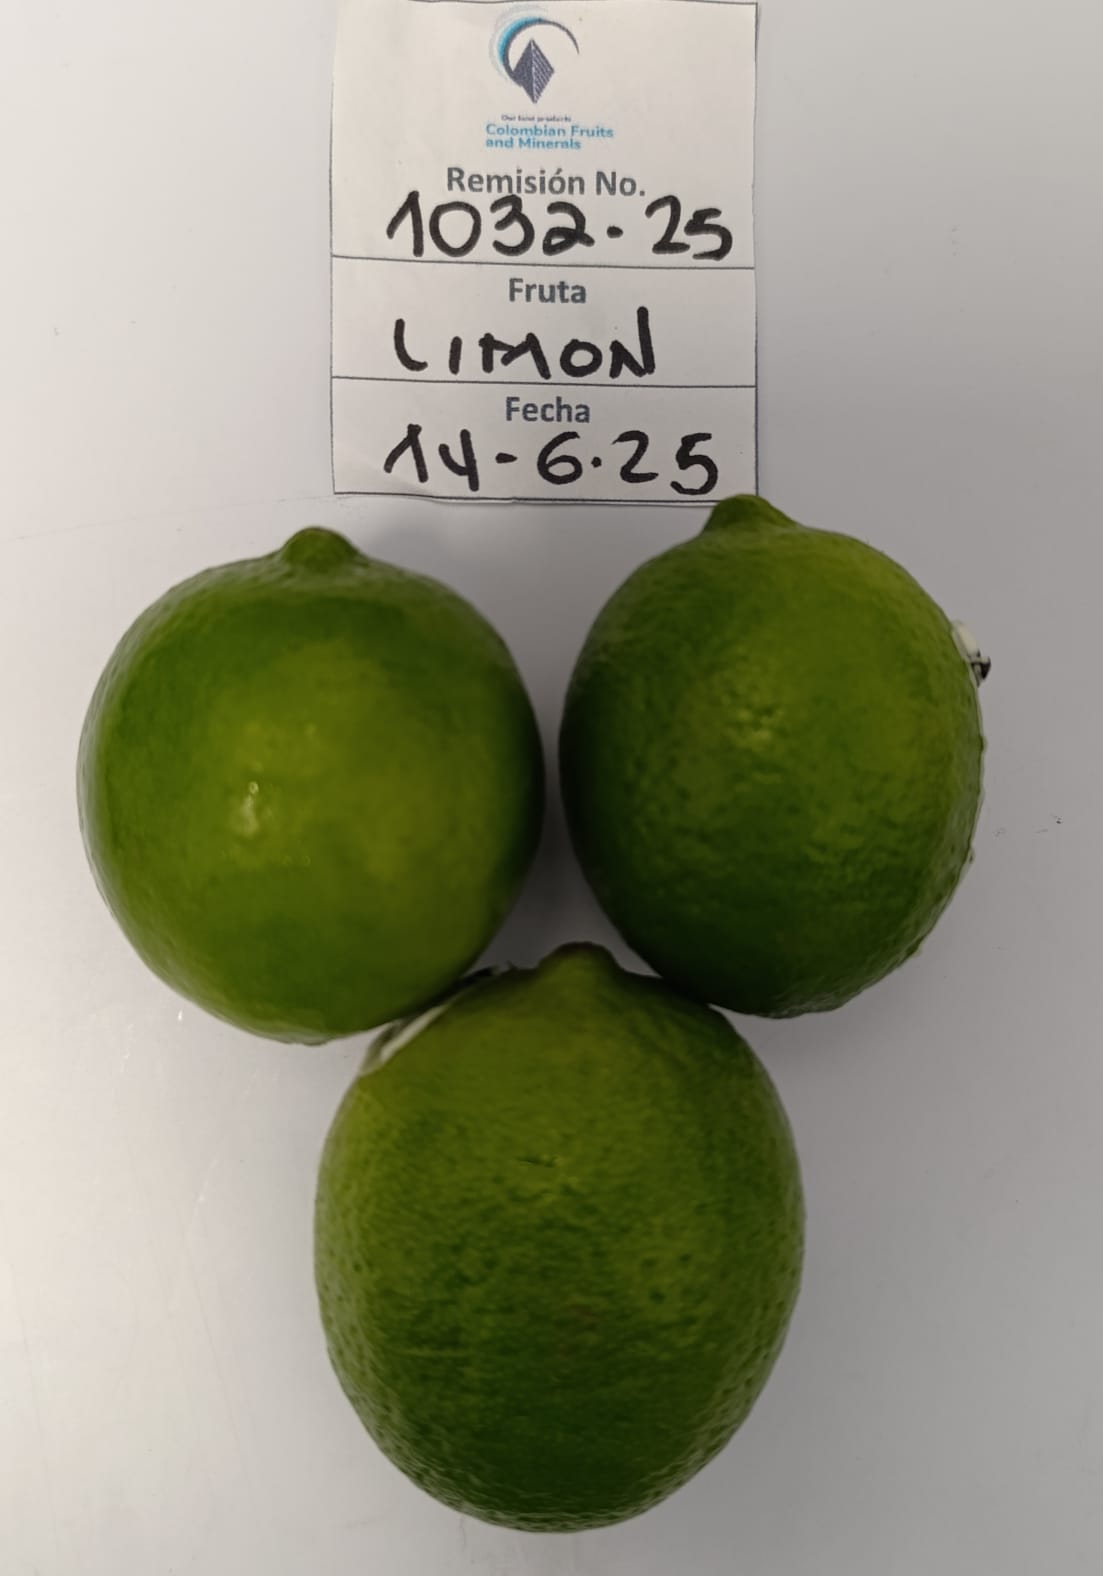 Our best products
Colombian Fruits
and Minerals
Remisión No.
1032-25
Fruta
LIMON
Fecha
14-6-25